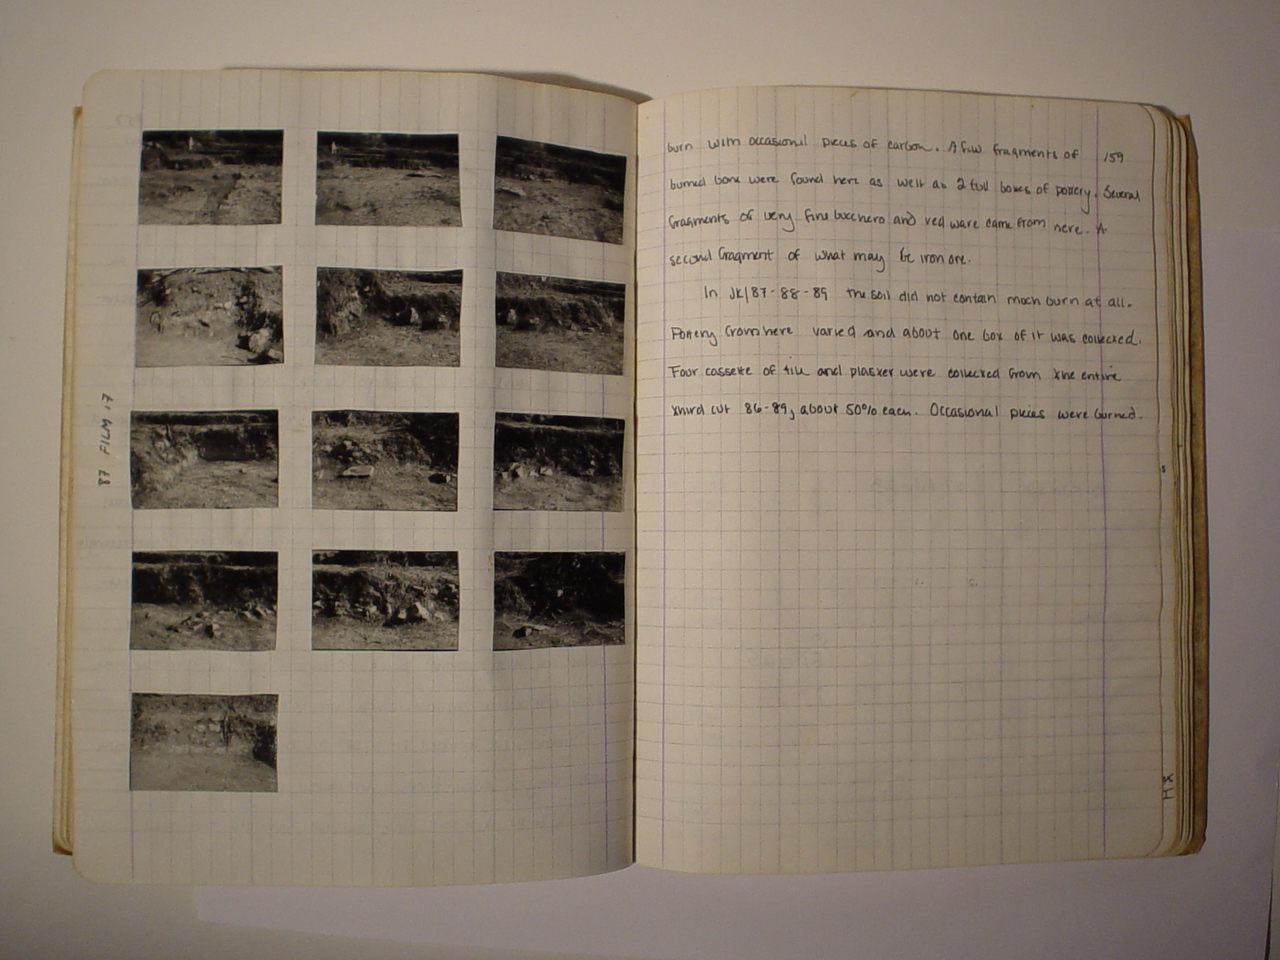 87 FILM 17
159
burn with occasional pieces of carbon. A few fragments of
burned bone were found here as well as 2 full boxes of pottery. Several
fragments of very fine bucchero and red ware came from here. A
second fragment of what may be iron ore.
In JK/87-88-89 the soil did not contain much burn at all.
Pottery from here varied and about one box of it was collected.
Four cassette of tile and plaster were collected from the entire
third cut 86-89, about 50% each. Occasional pieces were burned.